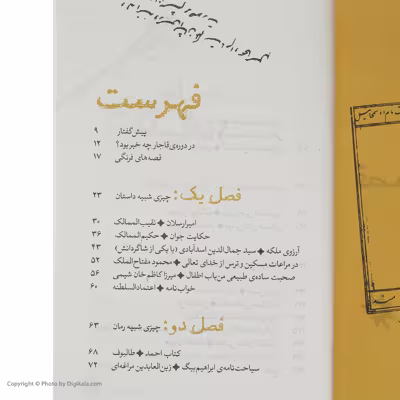 فهرست
پیش‌گفتار ۹
در دوره‌ی قاجار چه خبر بود؟ ۱۲
قصه‌های فرنگی ۱۷
فصل یک: چیزی شبیه داستان ۲۳
امیرارسلان ◆ نقیب‌الممالک ۳۰
حکایت جوان ◆ حکیم‌الممالک ۳۶
آرزوی ملکه ◆ سید جمال‌الدین اسدآبادی (یا یکی از شاگردانش) ۴۳
در مراعات مسکین و ترس از خدای تعالی ◆ محمود مفتاح‌الملک ۵۲
صحبت ساده‌ی طبیعی من باب اطفال ◆ میرزا کاظم‌خان شیمی ۵۶
خواب‌نامه ◆ اعتمادالسلطنه ۶۰
فصل دو: چیزی شبیه رمان ۶۳
کتاب احمد ◆ طالبوف ۶۸
سیاحت‌نامه‌ی ابراهیم‌بیگ ◆ زین‌العابدین مراغه‌ای ۷۲
Copyright © Photo by Digikala.com